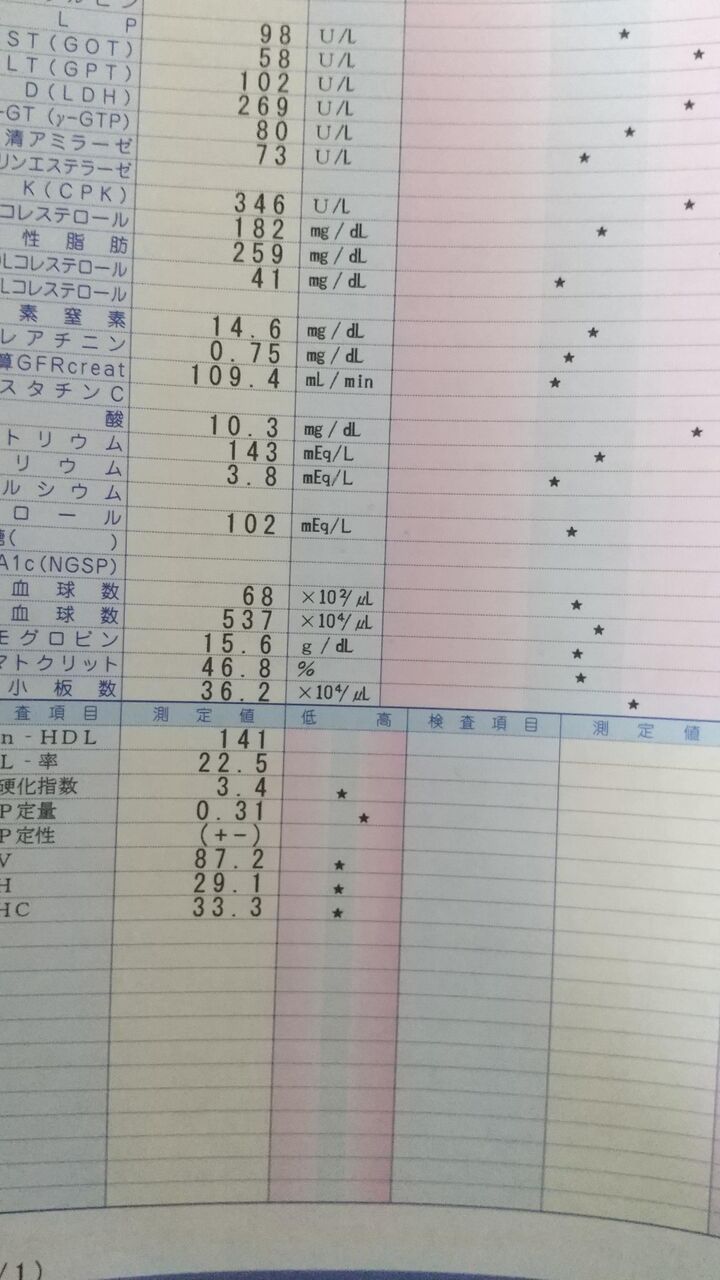 L P 98 U/L
ST(GOT) 58 U/L
LT(GPT) 102 U/L
D(LDH) 269 U/L
-GT (γ-GTP) 80 U/L
清アミラーゼ 73 U/L
リンエステラーゼ
K(CPK) 346 U/L
コレステロール 182 mg/dL
性脂肪 259 mg/dL
Lコレステロール 41 mg/dL
Lコレステロール
素窒素 14.6 mg/dL
レアチニン 0.75 mg/dL
算GFRcreat 109.4 mL/min
スタチンC
酸 10.3 mg/dL
トリウム 143 mEq/L
リウム 3.8 mEq/L
ルシウム
ロール 102 mEq/L
糖( )
A1c(NGSP)
血球数 68 ×10²/μL
血球数 537 ×10⁴/μL
モグロビン 15.6 g/dL
マトクリット 46.8 %
小板数 36.2 ×10⁴/μL
査項目 測定値 低 高 検査項目 測定値
n-HDL 141
L-率 22.5
硬化指数 3.4
P定量 0.31
P定性 (+-)
V 87.2
H 29.1
HC 33.3
/1)